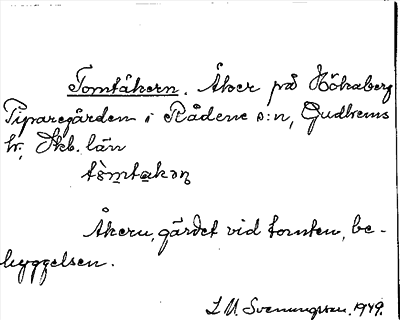 Tomtåkern. Åker på Hökaberg
Piparegården i Rådene s:n, Gudhems
hr, Skb. län
Åkern, gärdet vid tomten, be-
byggelsen.
L M Svenungsson. 1949.